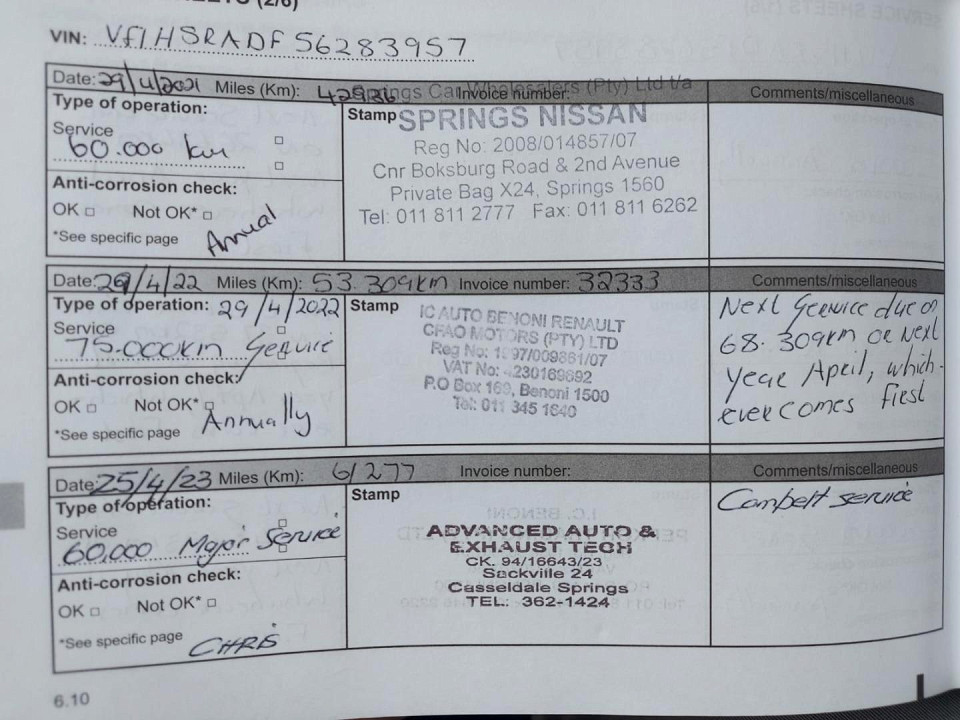 VIN: Vf1HSRADF56283957
Date: 29/4/2021 Miles (Km): Invoice number: Comments/miscellaneous
Springs Car Wholesalers (Pty) Ltd t/a
Type of operation: Stamp SPRINGS NISSAN
Service
60.000 km
Reg No: 2008/014857/07
Cnr Boksburg Road & 2nd Avenue
Private Bag X24, Springs 1560
Tel: 011 811 2777 Fax: 011 811 6262
Anti-corrosion check:
OK □ Not OK* □
*See specific page Annual
Date: 29/4/22 Miles (Km): 53.309km Invoice number: 32333 Comments/miscellaneous
Type of operation: 29/4/2022 Stamp
Service
75.000km Service
IC AUTO BENONI RENAULT
CFAO MOTORS (PTY) LTD
Reg No: 1997/009861/07
VAT No: 4230169692
P.O Box 169, Benoni 1500
Tel: 011 345 1640
Next Service due on
68.309km or Next
year April, which-
ever comes first
Anti-corrosion check:
OK □ Not OK* □
*See specific page Annually
Date: 25/4/23 Miles (Km): 61277 Invoice number: Comments/miscellaneous
Type of operation: Stamp
Service
60,000 Major Service
ADVANCED AUTO &
EXHAUST TECH
CK. 94/16643/23
Sackville 24
Casseldale Springs
TEL: 362-1424
Cambelt service
Anti-corrosion check:
OK □ Not OK* □
*See specific page CHRIS
6.10